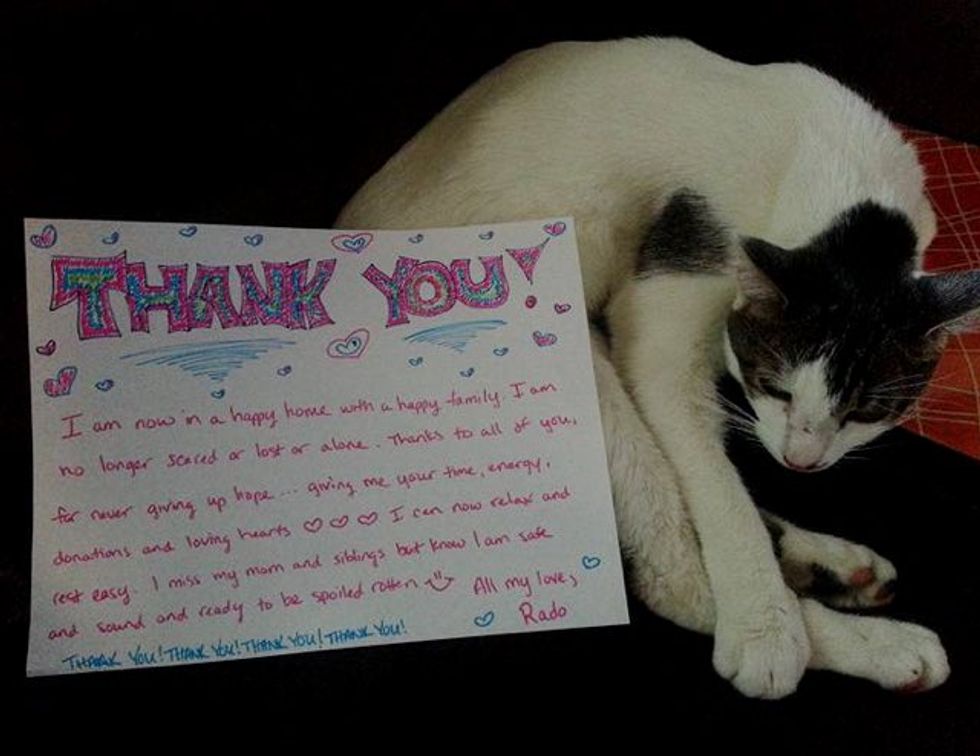 THANK YOU!
I am now in a happy home with a happy family. I am
no longer scared or lost or alone. Thanks to all of you,
for never giving up hope... giving me your time, energy,
donations and loving hearts ♡♡♡ I can now relax and
rest easy. I miss my mom and siblings but know I am safe
and sound and ready to be spoiled rotten
All my love,
Rado
THANK YOU! THANK YOU! THANK YOU! THANK YOU!